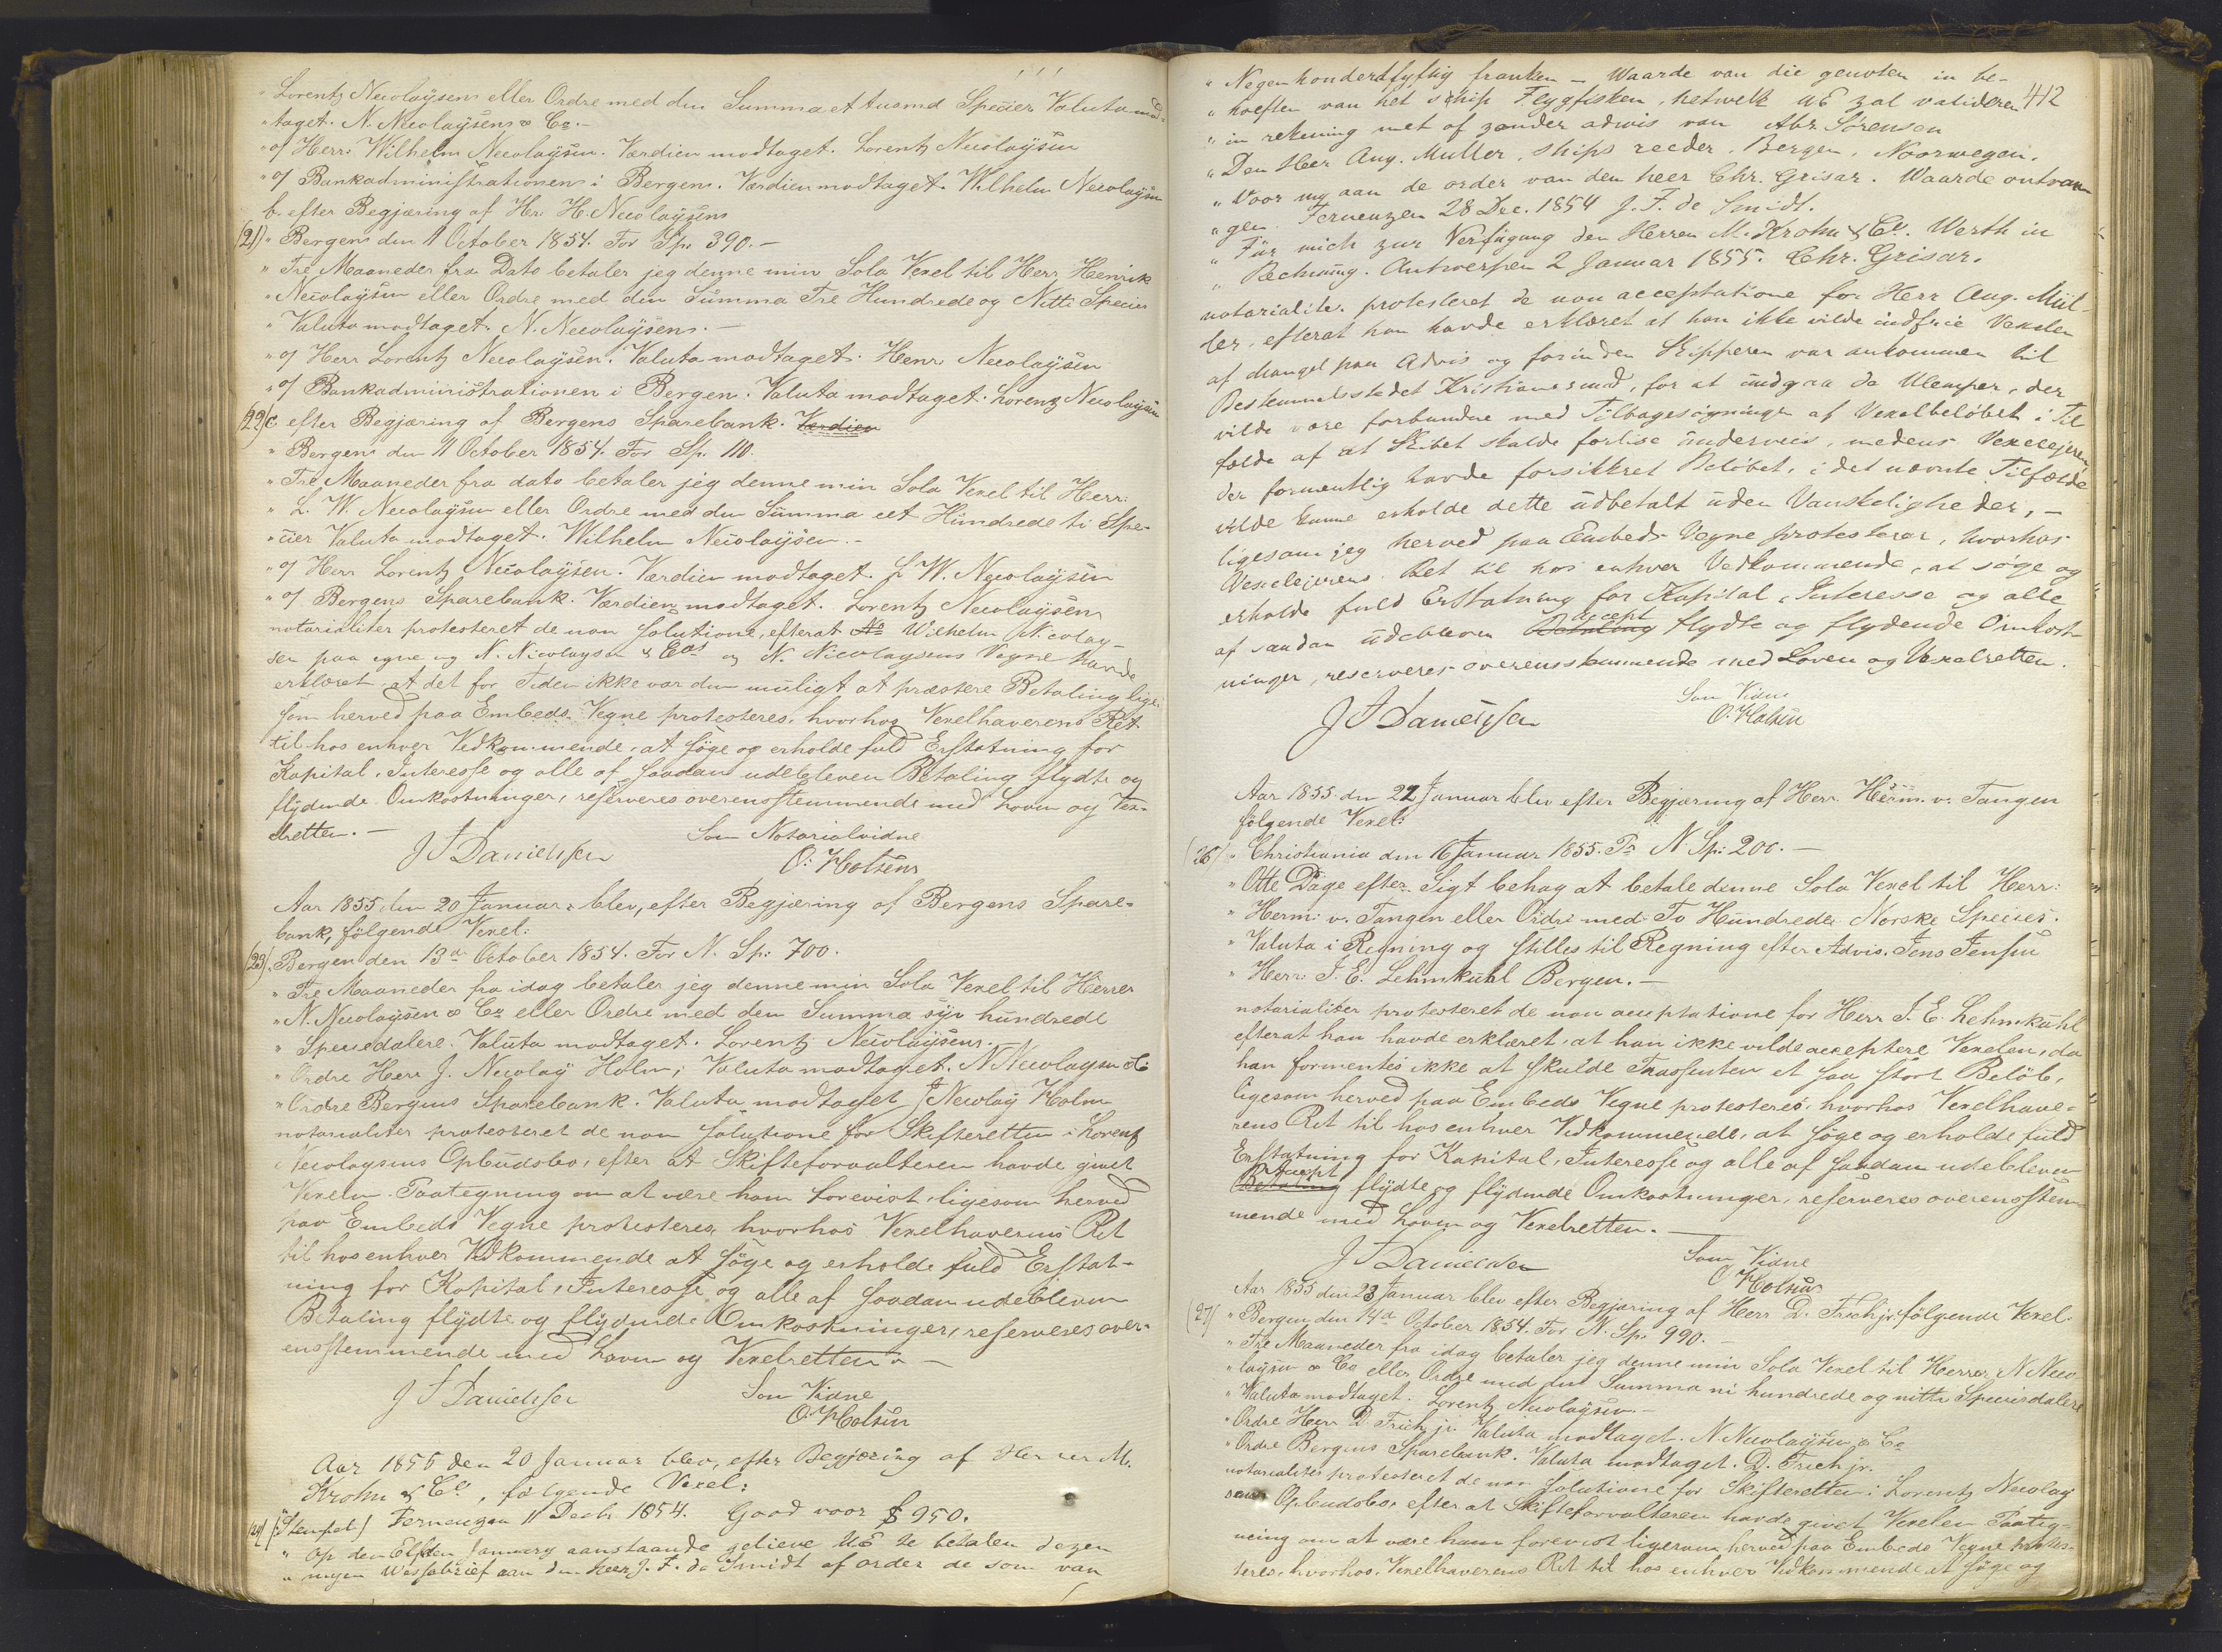 " Lorentz Nicolaysen eller Ordre med den Summa et tusend Specier Valuta mod-
" taget. N. Nicolaysens & Co.-
" of Herr: Wilhelm Nicolaysen. Værdien modtaget. Lorentz Nicolaysen
" of Bankadministrationen i Bergen. Værdien modtaget. Wilhelm Nicolaysen
b. efter Begjæring af Hr. H. Nicolaysens
(21) " Bergen den 11 October 1854. For Sp. 390.-
" Tre Maaneder fra Dato betaler jeg denne min Sola Vexel til Herr Henrik
" Nicolaysen eller Ordre med den Summa Tre Hundrede og Nitti Specier
" Valuta modtaget. N. Nicolaysens.-
" of Herr Lorentz Nicolaysen. Valuta modtaget. Henr. Nicolaysen
" of Bankadministrationen i Bergen. Valuta modtaget. Lorentz Nicolaysen
(22) c efter Begjæring af Bergens Sparebank. Værdien
" Bergen den 11 October 1854. For Sp. 110.
" Tre Maaneder fra dato betaler jeg denne min Sola Vexel til Herr:
" L. W. Nicolaysen eller Ordre med den Summa eet Hundrede ti Spe-
" cier Valuta modtaget. Wilhelm Nicolaysen.-
" of Herr Lorentz Nicolaysen. Værdien modtaget. L W. Nicolaysen
" of Bergens Sparebank. Værdien modtaget. Lorentz Nicolaysen
notarialiter protesteret de non solutione, efterat Wilhelm Nicolay-
sen paa egne og N. Nicolaysen & Cos og N. Nicolaysens Vegne havde
erklæret, at det for Tiden ikke var dem muligt at præstere Betaling lige-
som herved paa Embeds Vegne protesteres, hvorhos Vexelhaverens Ret
til hos enhver Vedkommende, at søge og erholde fuld Erstatning for
Kapital, Interesse og alle af saadan udebleven Betaling flydte og
flydende Omkostninger, reserveres overensstemmende med Loven og Vex-
elretten.-
J S Danielssen Som Notarialvidne
O. Holsen
Aar 1855 den 20 Januar, blev, efter Begjæring af Bergens Spare-
bank, følgende Vexel:
(23). Bergen den 13de October 1854. For N. Sp: 700.
" Tre Maaneder fra idag betaler jeg denne min Sola Vexel til Herrer
" N. Nicolaysen & Co eller Ordre med den Summa syv hundrede
" Speciedalere. Valuta modtaget. Lorentz Nicolaysens.
" Ordre Herr J. Nicolay Holm; Valuta modtaget. N Nicolaysen & Co
" Ordre Bergens Sparebank. Valuta modtaget J Nicolay Holm
notarialiter protesteret de non solutione for Skifteretten i Lorentz
Nicolaysens Opbudsbo, efter at Skifteforvalteren havde givet
Vexelen Paategning om at være ham forevist, ligesom herved
paa Embeds Vegne protesteres, hvorhos Vexelhaverens Ret
til hos enhver Vedkommende at søge og erholde fuld Erstat-
ning for Kapital, Interesse og alle af saadan udebleven
Betaling flydte og flydende Omkostninger, reserveres over-
ensstemmende med Loven og Vexelretten.-
J S Danielssen Som Vidne
O. Holsen
Aar 1855 den 20 Januar blev, efter Begjæring af Herrer M.
Krohn & Co, følgende Vexel:
(24) (Stempel) Terneuzen 11 Decbr. 1854. Good voor f 950.
" Op den Elfden January aanstaande gelieve UE te betalen dezen
" mynen Wisselbrief aan den heer J. F. de Smidt of order de som van
412
" Negenhonderdfyftig franken - Waarde van die genoten in be-
" hoeften van het schip Flygfisken, hetwelk UE zal valideren
" in rekening met of zonder advis van Abr. Sörensen
" Den Heer Aug. Muller, ships reeder. Bergen. Noorwegen.
" Voor my aan de order van den heer Chr. Grisar. Waarde ontvan-
" gen. Terneuzen 28 Dec. 1854 J. F. de Smidt.
" Für mich zur Verfügung den Herren M. Krohn & Co. Werth in
" Rechnung. Antwerpen 2 Januar 1855. Chr. Grisar.
notarialiter protesteret de non acceptatione for Herr Aug. Mül-
ler, efterat han havde erklæret at han ikke vilde indfrie Vexelen
af Mangel paa Advis og forinden Skipperen var ankommen til
Bestemmelsesstedet Kristiansund, for at undgaa de Ulemper, der
vilde være forbundne med Tilbagesøgningen af Vexelbeløbet i Til-
fælde af at Skibet skulde forlise underveis, medens Vexelejeren,
der formentlig havde forsikkret Beløbet, i det nævnte Tilfælde
vilde kunne erholde dette udbetalt uden Vanskeligheder, -
ligesom jeg herved paa Embeds Vegne protesterer, hvorhos
Vexelejerens Ret til hos enhver Vedkommende, at søge og
erholde fuld Erstatning for Kapital, Interesse og alle
af saadan udebleven Betaling accept flydte og flydende Omkost-
ninger, reserveres overensstemmende med Loven og Vexelretten.
J S Danielssen Som Vidne
O. Holsen
Aar 1855 den 22 Januar blev efter Begjæring af Herr Herm. v. Tangen
følgende Vexel:
(26) " Christiania den 16 Januar 1855. Pr N. Sp: 200.-
" Otte Dage efter Sigt behag at betale denne Sola Vexel til Herr:
" Herm: v. Tangen eller Ordre med To Hundrede Norske Species.
" Valuta i Regning og stilles til Regning efter Advis. Jens Jensen
" Herr: J. E. Lehmkuhl Bergen.-
notarialiter protesteret de non acceptatione for Herr J. E. Lehmkuhl
efterat han havde erklæret, at han ikke vilde acceptere Vexelen, da
han formentes ikke at skulde Trassenten et saa stort Beløb,
ligesom herved paa Embeds Vegne protesteres, hvorhos Vexelhave-
rens Ret til hos enhver Vedkommende, at søge og erholde fuld
Erstatning for Kapital, Interesse og alle af saadan udebleven
Betaling Accept flydte og flydende Omkostninger, reserveres overensstem-
mende med Loven og Vexelretten.-
J S Danielssen Som Vidne
O Holsen
Aar 1855 den 23 Januar blev efter Begjæring af Herr D. Frich jr. følgende Vexel.
(27) " Bergen den 14de October 1854. For N. Sp: 990.-
" Tre Maaneder fra idag betaler jeg denne min Sola Vexel til Herrer N Nico-
" laysen & Co eller Ordre med den Summa ni hundrede og nitti Speciesdalere
" Valuta modtaget. Lorentz Nicolaysen.-
" Ordre Herr D. Frich jr. Valuta modtaget. N. Nicolaysen & Co
" Ordre Bergens Sparebank. Valuta modtaget. D. Frich jr.
notarialiter protesteret de non solutione for Skifteretten i Lorentz Nicolay-
sens Opbudsbo, efter at Skifteforvalteren havde givet Vexelen Paateg-
ning om at være ham forevist ligesom herved paa Embeds Vegne protes-
teres, hvorhos Vexelhaverens Ret til hos enhver Vedkommende at søge og